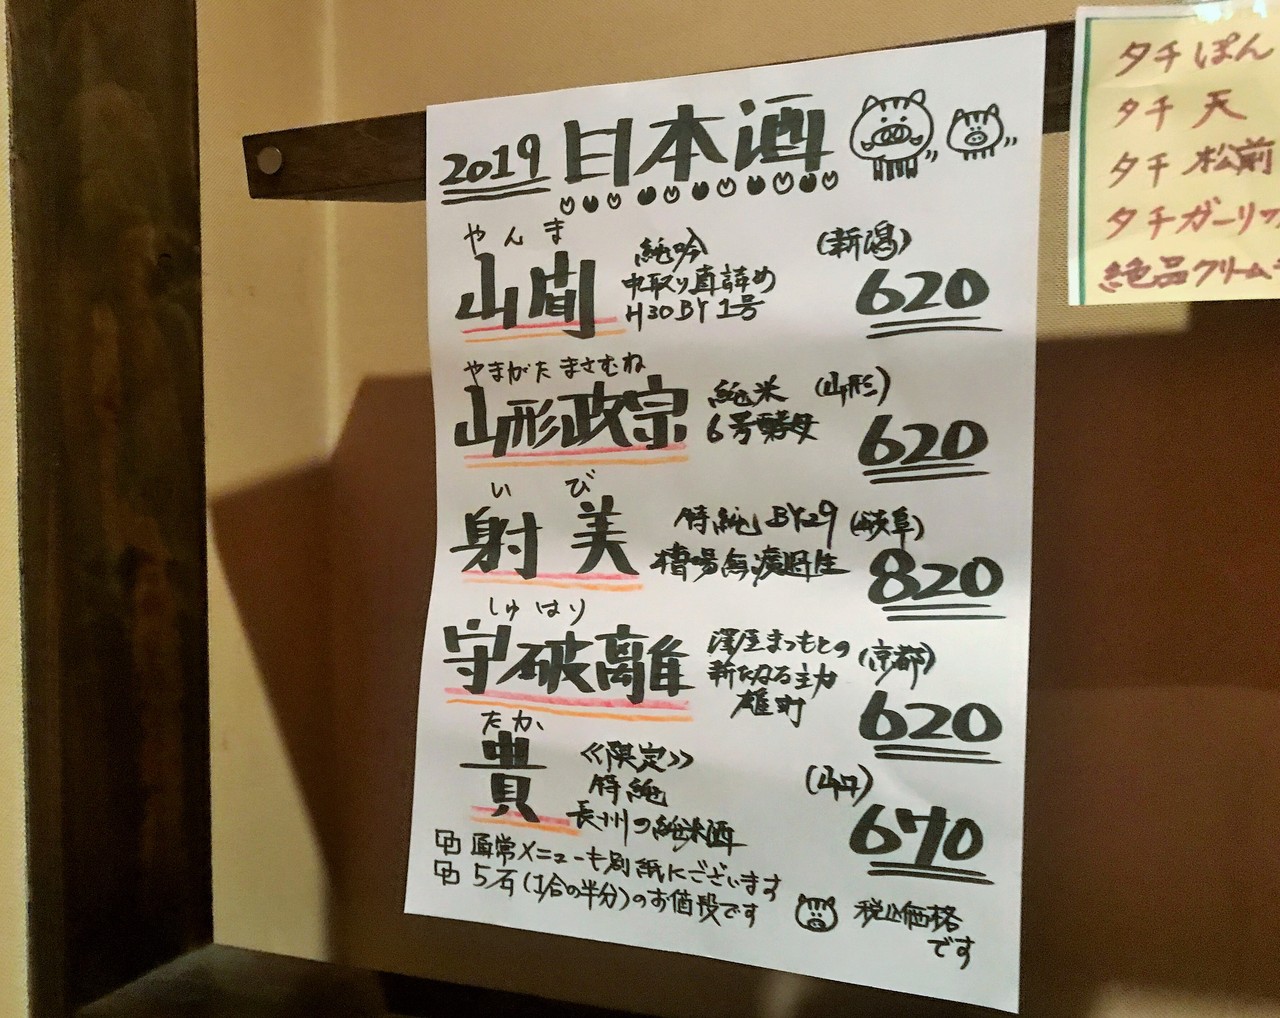 2019 日本酒
やんま
山間
純吟
中取り直詰め
H30BY 1号
(新潟)
620
やまがた まさむね
山形政宗
純米
6号酵母
(山形)
620
いび
射美
特純 BY29
槽場無濾過生
(岐阜)
820
しゅはり
守破離
澤屋まつもとの
新たなる主力
雄町
(京都)
620
たか
貴
《限定》
特純
長州の純米酒
(山口)
670
通常メニューも別紙にございます
5勺(1合の半分)のお値段です
税込価格
です
タチぽん
タチ天
タチ松前
タチガーリッ
絶品クリーム